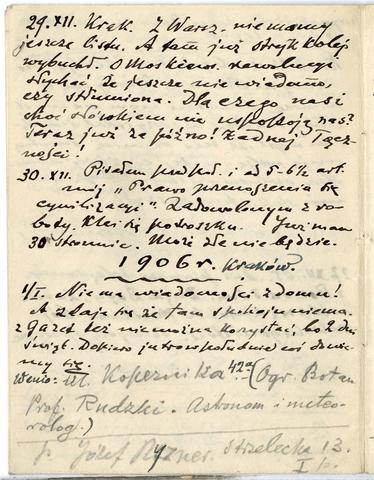 29.XII. Krak. Z Warsz. nie mamy
jeszcze listu. A tam już strejk kolej.
wybuchł. O Moskiew. rewolucyi
słychać że jeszcze nie wiadomo,
czy stłumiona. Dlaczego nasi
choć słówkiem nie uspokoją nas?
Teraz już za późno! Żadnej łącz-
ności!
30.XII. Pisałem przedpoł. i od 5-6½ art.
mój „Prawo przenoszenia się
cywilizacyi". Zadowolonym z ro-
boty. Klei się potroszku. Już mam
30 stronnic. Może źle nie będzie.
1906 r. Kraków.
1/I. Niema wiadomości z domu!
A zdaje się że tam spokoju niema.
z Gazet też nie można korzystać, bo 2 dni
świąt. Dopiero jutro popołudniu coś dowie-
my się.
Ul. Kopernika 42a (Ogr. Botan.
Prof. Rudzki. Astronom i meteo-
rolog.)
p. Józef Ryzner. Strzelecka 13.
I p.